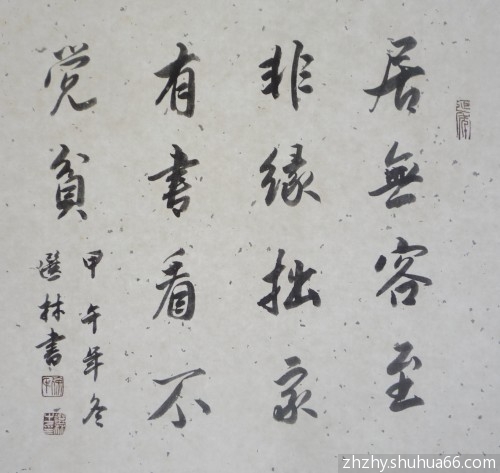 居無容至
非緣拙家
有書看不
覺貧
甲午年冬
選林書
zhzhy.shuhua66.com